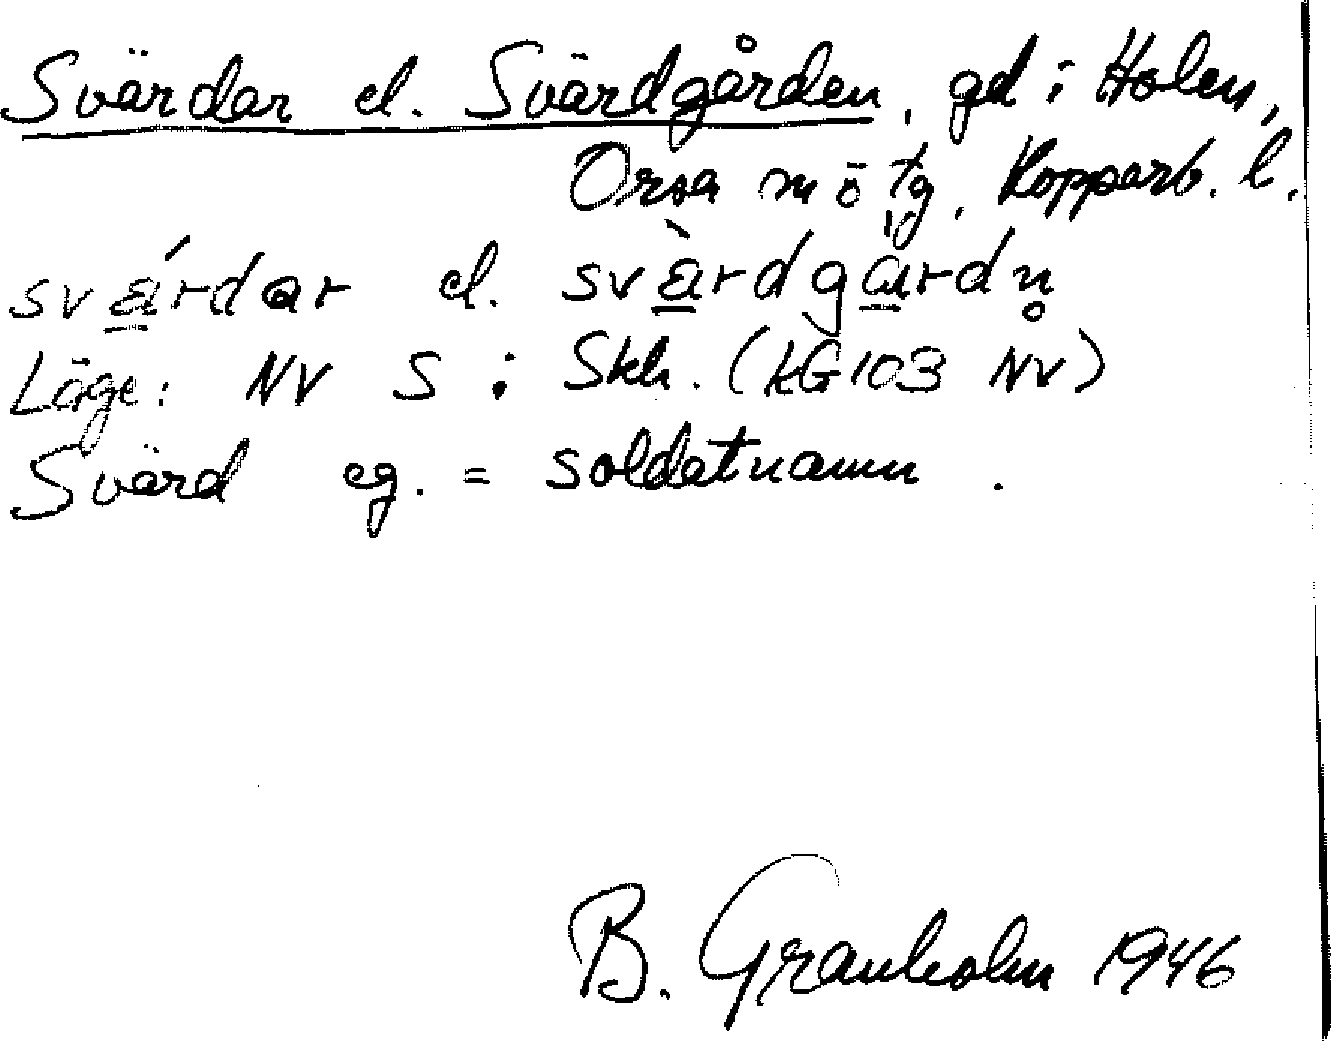 Svärdar el. Svärdgården, gd i Holen,
Orsa sn ö tg, Kopparb. l.
svárdar el. svàrdgàrdn̥
Läge: NV S i Skh. (kG 103 NV)
Svärd eg. = soldatnamn .
B. Granholm 1946